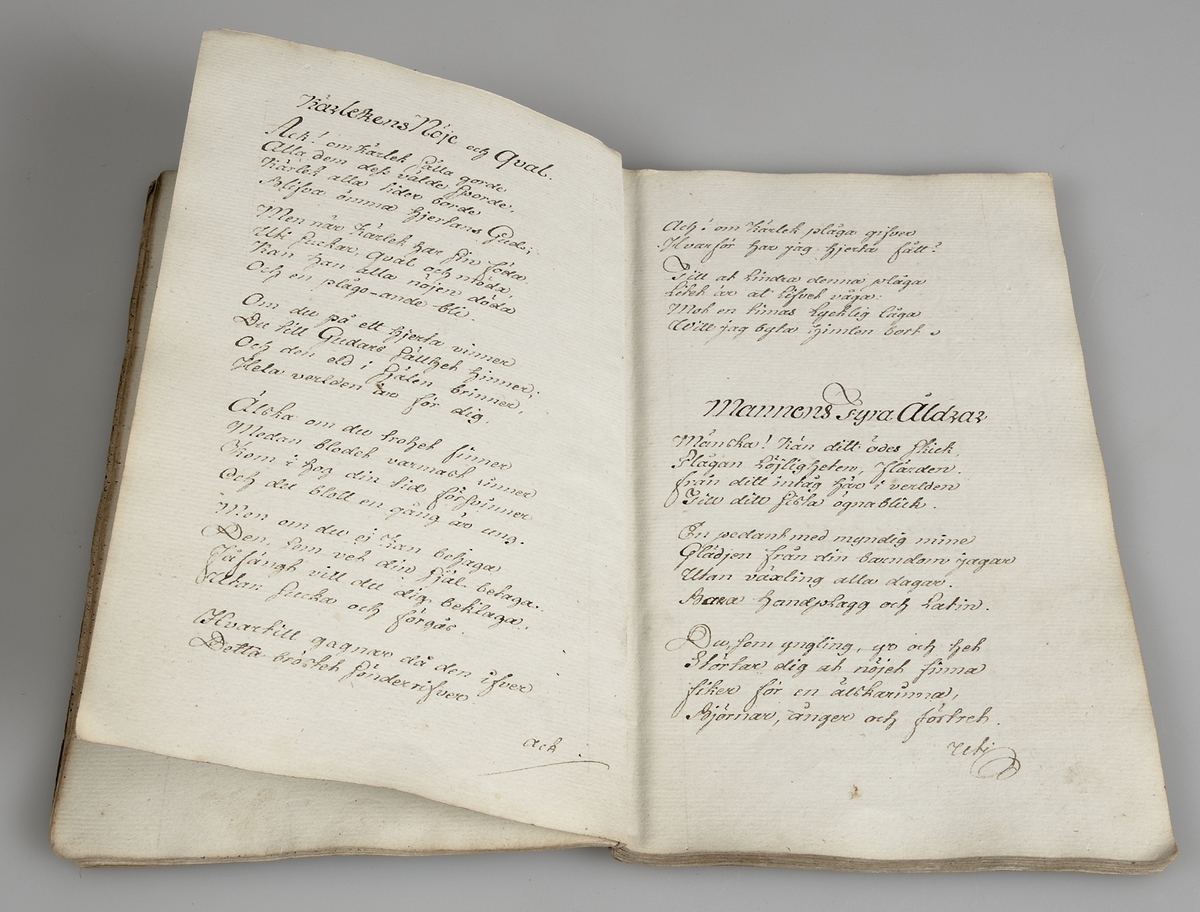 Kärlekens Nöje och Qval.
Ack! om kärlek sälla gorde
Alla dem dess välde sporde,
Kärlek alla tider borde
Blifva ömma hjertans Gud;
Men när kärlek har sin föda
Uti suckar, qval och möda,
Kan han alla nöjen döda
Och en plågo-ande bli.
Om du på ett hjerta vinner
Du till Gudars sällhet hinner;
Och den eld i själen brinner,
Hela verlden är för dig.
Älska om du trohet finner
Medan blodet varmast rinner
Kom i hog din tid försvinner
Och du blott en gång är ung.
Men om du ej kan behaga
Den, som vet din själ betaga.
Fåfängt vill du dig beklaga,
Utan sucka och förgås.
Hvartill gagnar då den ifver
Detta bröstet sönderrifver
Ack
Ach! om kärlek plåga gifver
Hvarför har jag hjerta fått?
Till at lindra denna plåga
Litet är at lifvet våga:
Mot en timas lycklig låga
Will jag byta himlen bort.
Mannens Fyra Åldrar
Mänska! kän ditt ödes skick,
Plågan Löjligheten, flärden.
från ditt intåg här i verlden
Till ditt sista ögnablick.
En pedant med myndig mine
Glädjen från din barndom jagar
Utan växling alla dagar.
Bara handplagg och Latin.
Du, som yngling, yr och het
Störtar dig at nöjet finna
fiker för en älskarinna,
Björnar, ånger och förtret.
Uti